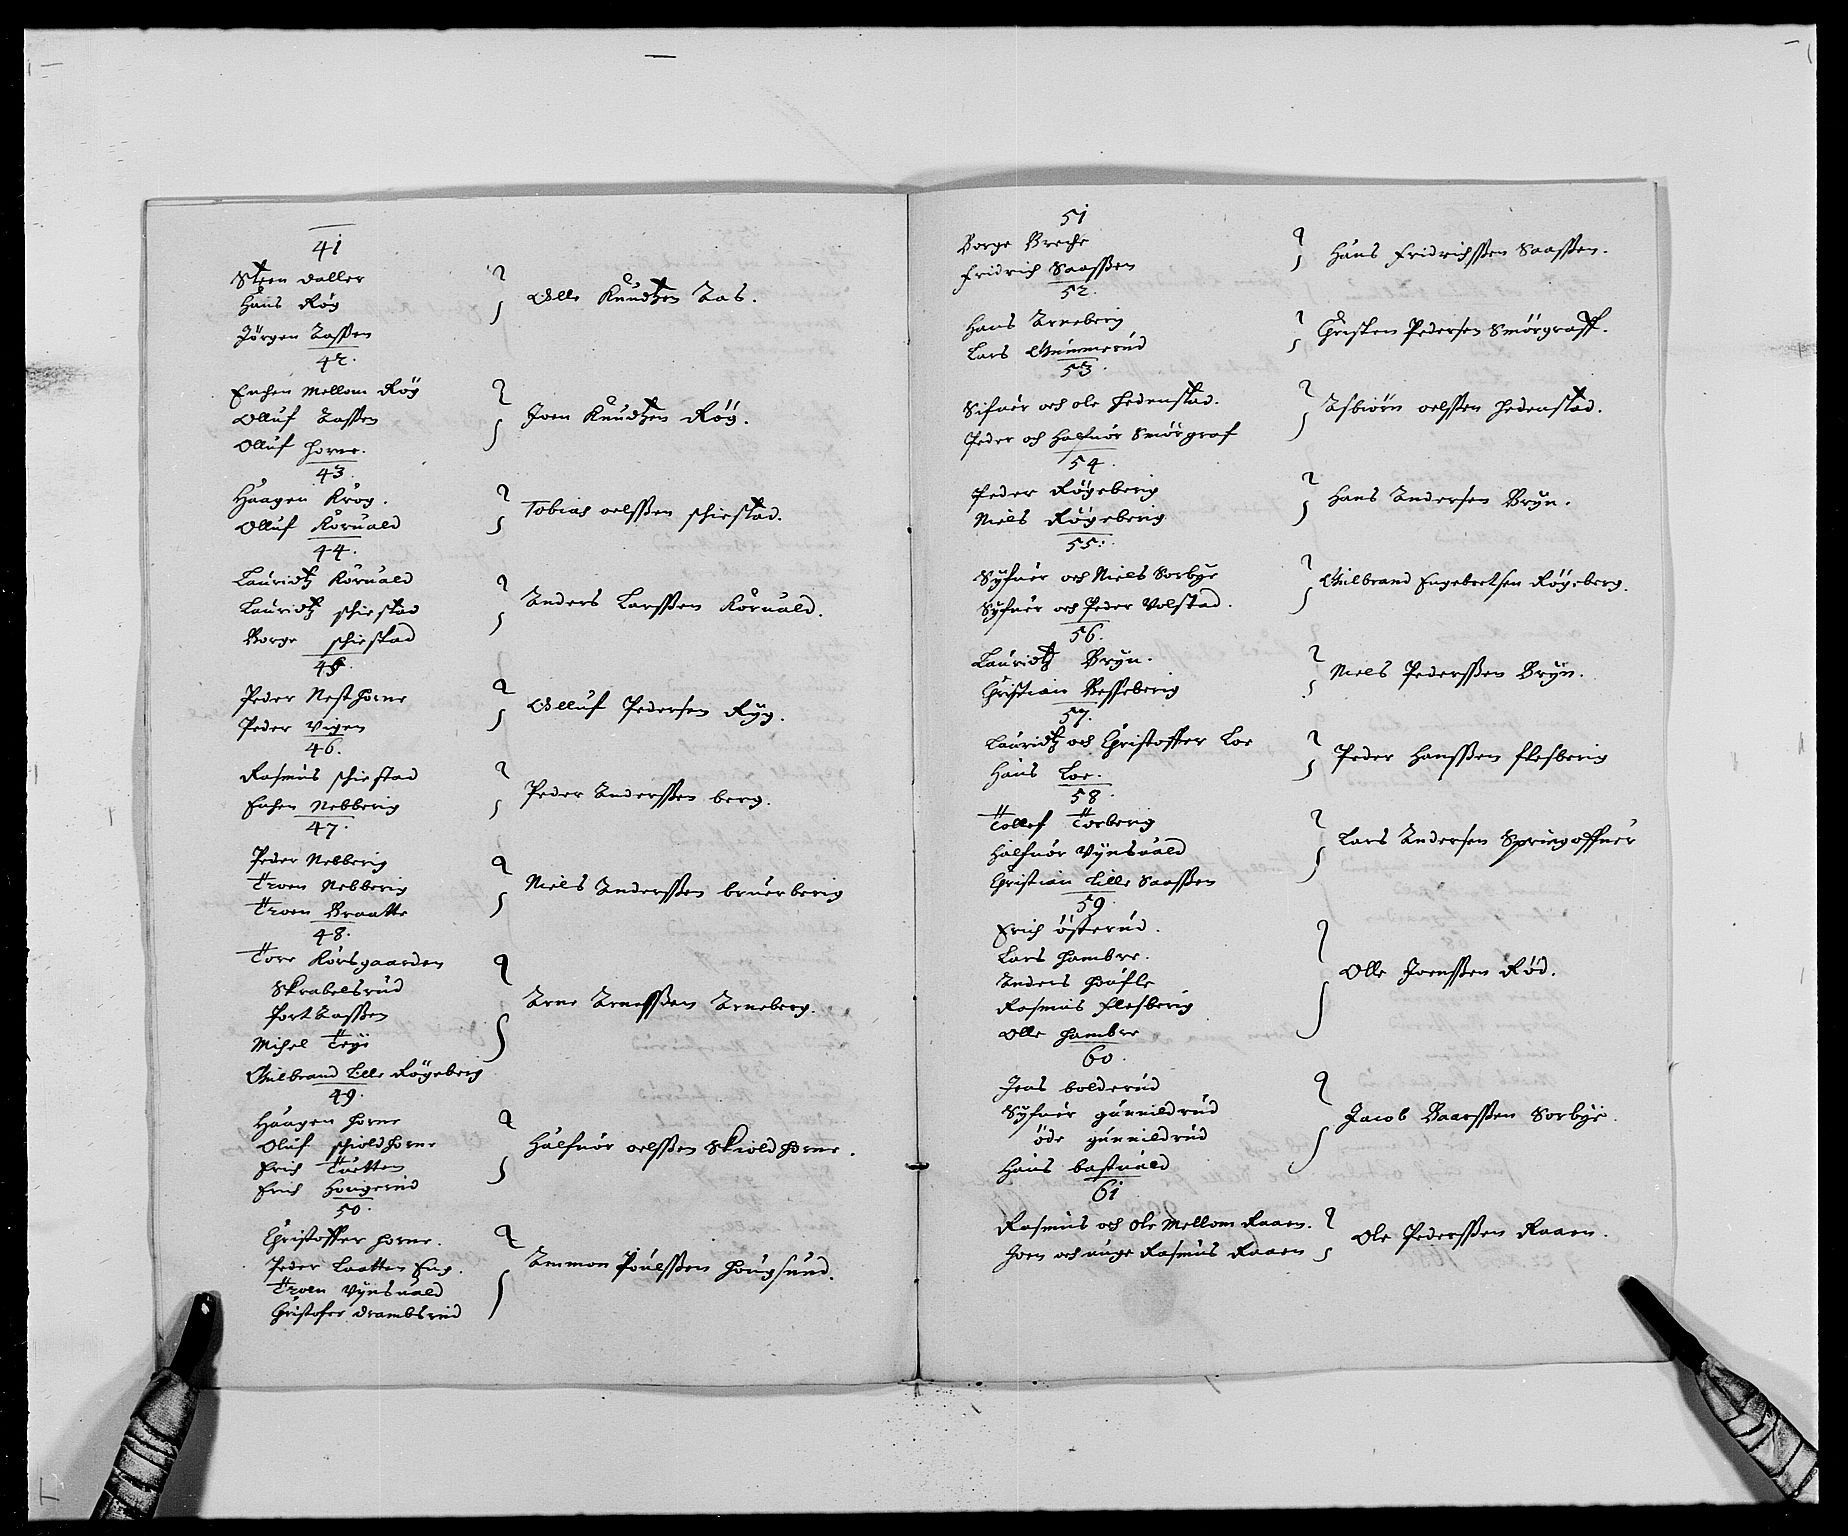 41
Steen daller
Hans Røg
Jørgen Aassen
Olle Knudtzen Aas.
42
Enchen Mellom Røg
Olluf Aassen
Olluf Horne.
Joen Knudtzen Røg.
43
Haagen Krog.
Olluf Koruald
Tobias oelssen schiestad.
44.
Lauridtz Koruald
Lauridtz schiestad
Borge schiestad
Anders Larssen Koruald.
45.
Peder Nesthorne
Peder Vigen
Olluf Pedersen Ryg.
46.
Rasmus schiestad
Enchen Nebberig
Peder Anderssen berg.
47.
Peder Nebberig
Troen Nebberig
Troen Braatte
Niels Anderssen bruerberig
48.
Tore Korsgaarden
Skrabelsrud
Hort Aassen
Michel Teye
Gulbrand Lille Røgeberg
Arne Arnessen Arneberg.
49.
Haagen Horne
Oluf schioldhorne
Erich Tuetten
Erich Hougerud
Halfuor oelssen Skioldhorne.
50.
Christoffer Horne.
Peder Laatten Eng.
Troen Vynsuald
Christofer drambsrud
Ammon Poulssen Hougsund.
51
Borge Breche
Fridrich Saassen
Hans Fridrichssen Saassen.
52.
Hans Arneberg
Lars Gummerud
Christen Pedersen Smørgraff.
53
Sifuer och ole Hedenstad.
Peder och Halfuor Smørgraf
Asbiørn oelssen Hedenstad.
54.
Peder Røgeberig
Niels Røgeberig
Hans Andersen Bryn.
55.
Syfuer och Niels Sorbye
Syfuer och Peder Volstad.
Gulbrand Engebretsen Røgeberg.
56.
Lauridtz Bryn.
Christian Besseberig
Niels Pederssen Bryn.
57.
Lauridtz och Christoffer Loe
Hans Loe.
Peder Hanssen flesberig
58
Tollef Torberig
Halfuor Vynsuald
Christian Lille Saassen
Lars Andersen Springoffuer
59
Erich østerud.
Lars Hambre.
Anders Hoffle
Rasmus Flesberig
Olle Hambre
Olle Joenssen Rød.
60.
Jens bolderud
Syfuer gunnildrud
øde gunnildrud
Hans bastuald
Jacob Baarssen Sorbye.
61
Rasmus och Ole Mellom Raaen.
Joen och unge Rasmus Raaen
Ole Pederssen Raaen.